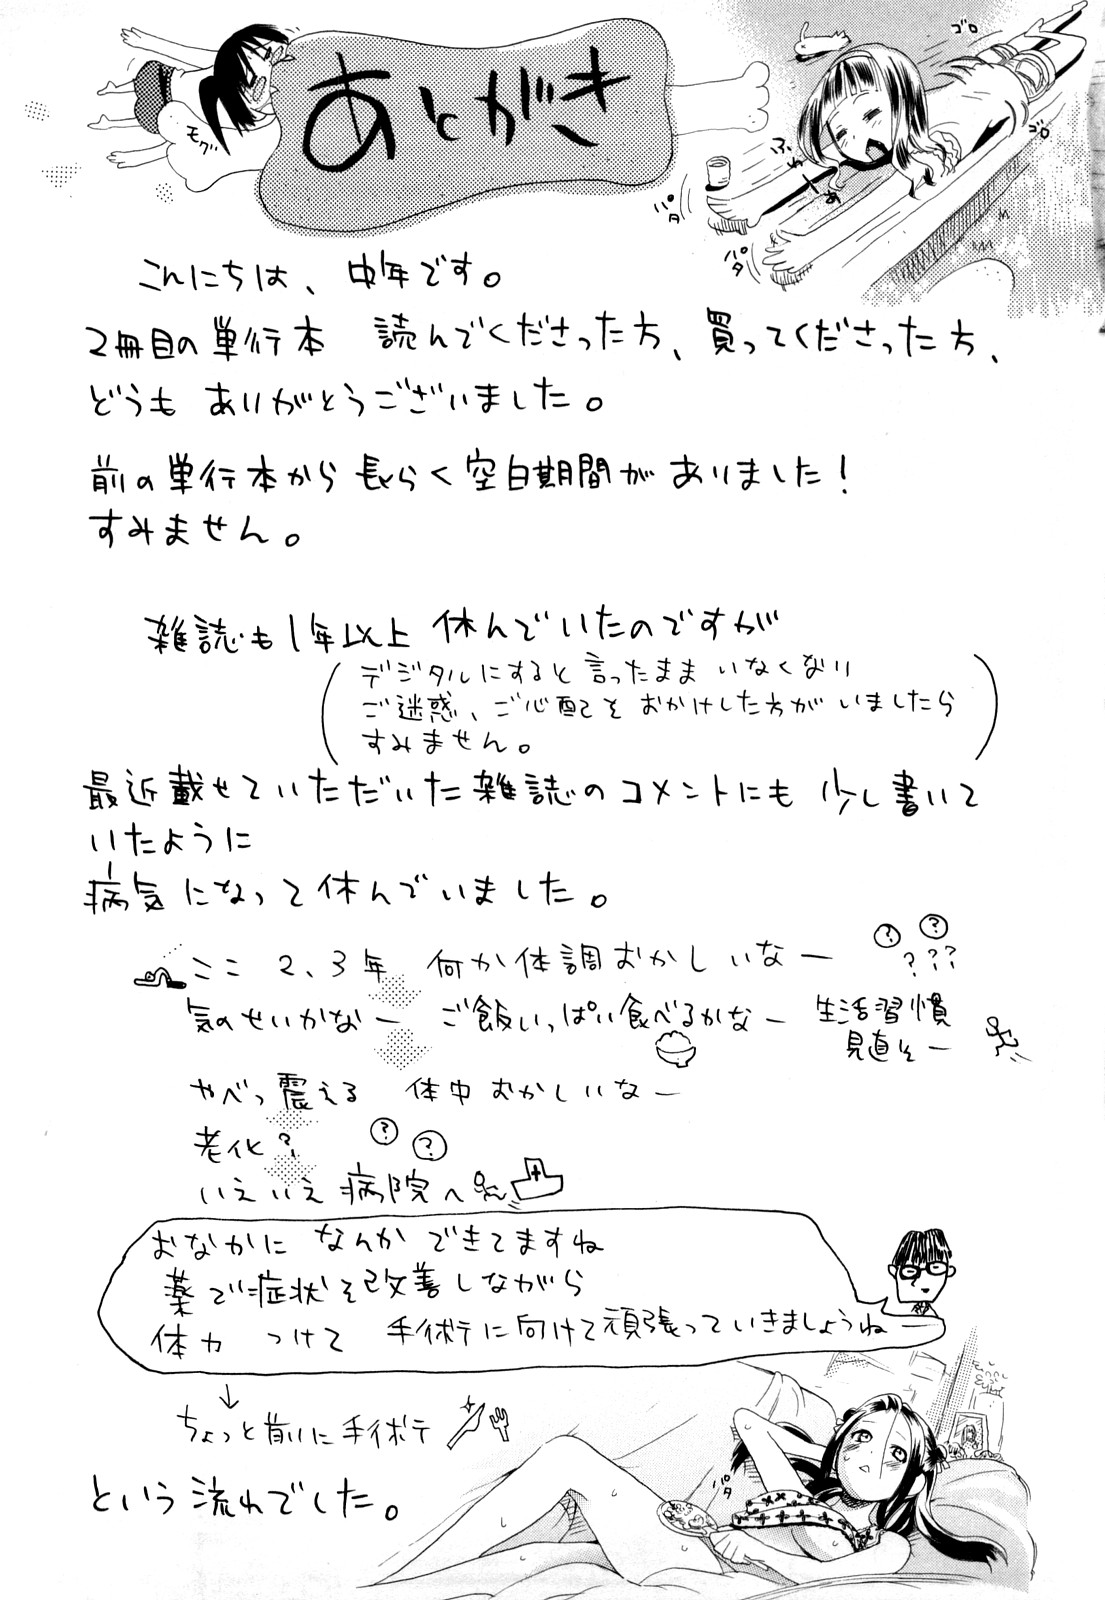 あとがき
モグ
ゴロ
ゴロ
ふわーあ
パタ
パタ
こんにちは、中年です。
2冊目の単行本 読んでくださった方、買ってくださった方、
どうも ありがとうございました。
前の単行本から 長らく空白期間が ありました!
すみません。
雑誌も1年以上 休んでいたのですが
(デジタルにすると言ったまま いなくなり
ご迷惑、ご心配を おかけした方が いましたら
すみません。)
最近載せていただいた雑誌のコメントにも 少し書いて
いたように
病気になって休んでいました。
ここ 2、3年 何か体調おかしいなー
? ? ???
気のせいかなー ご飯いっぱい食べるかなー 生活習慣
見直そー
やべっ震える 体中おかしいなー
老化?
? ?
いえいえ 病院へ
おなかに なんか できてますね
薬で症状を改善しながら
体力 つけて 手術に向けて頑張っていきましょうねー
↓
ちょっと前に手術
パタ
という流れでした。